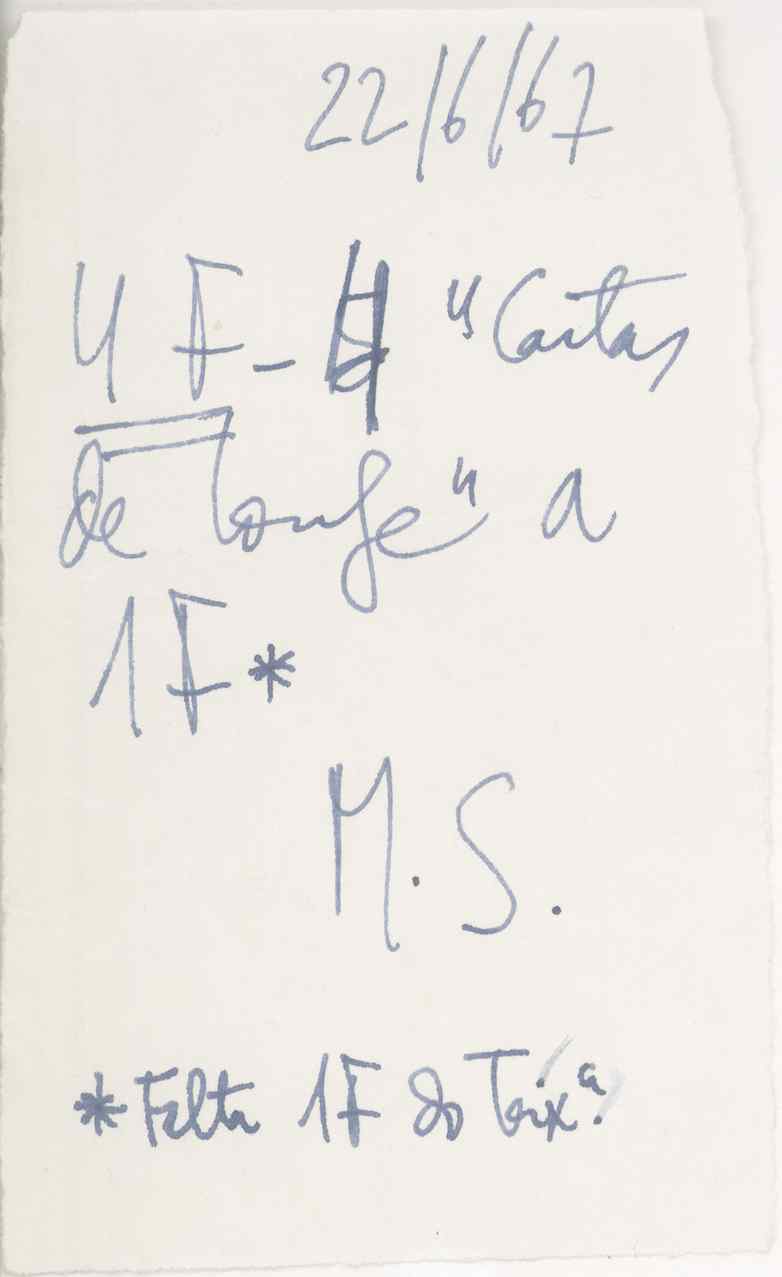 22/6/67
4 F - 4 "Cartas
de Longe" a
1F *
M. S.
* Falta 1F do Teixª.